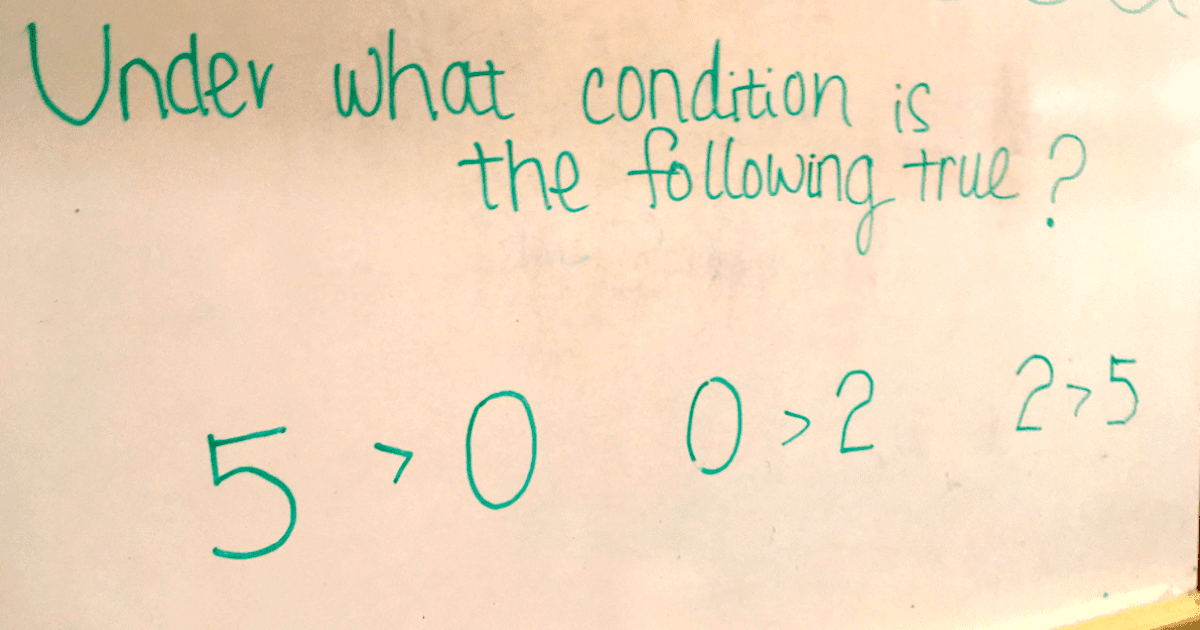 Under what condition is
the following true?
5 > 0 0 > 2 2 > 5